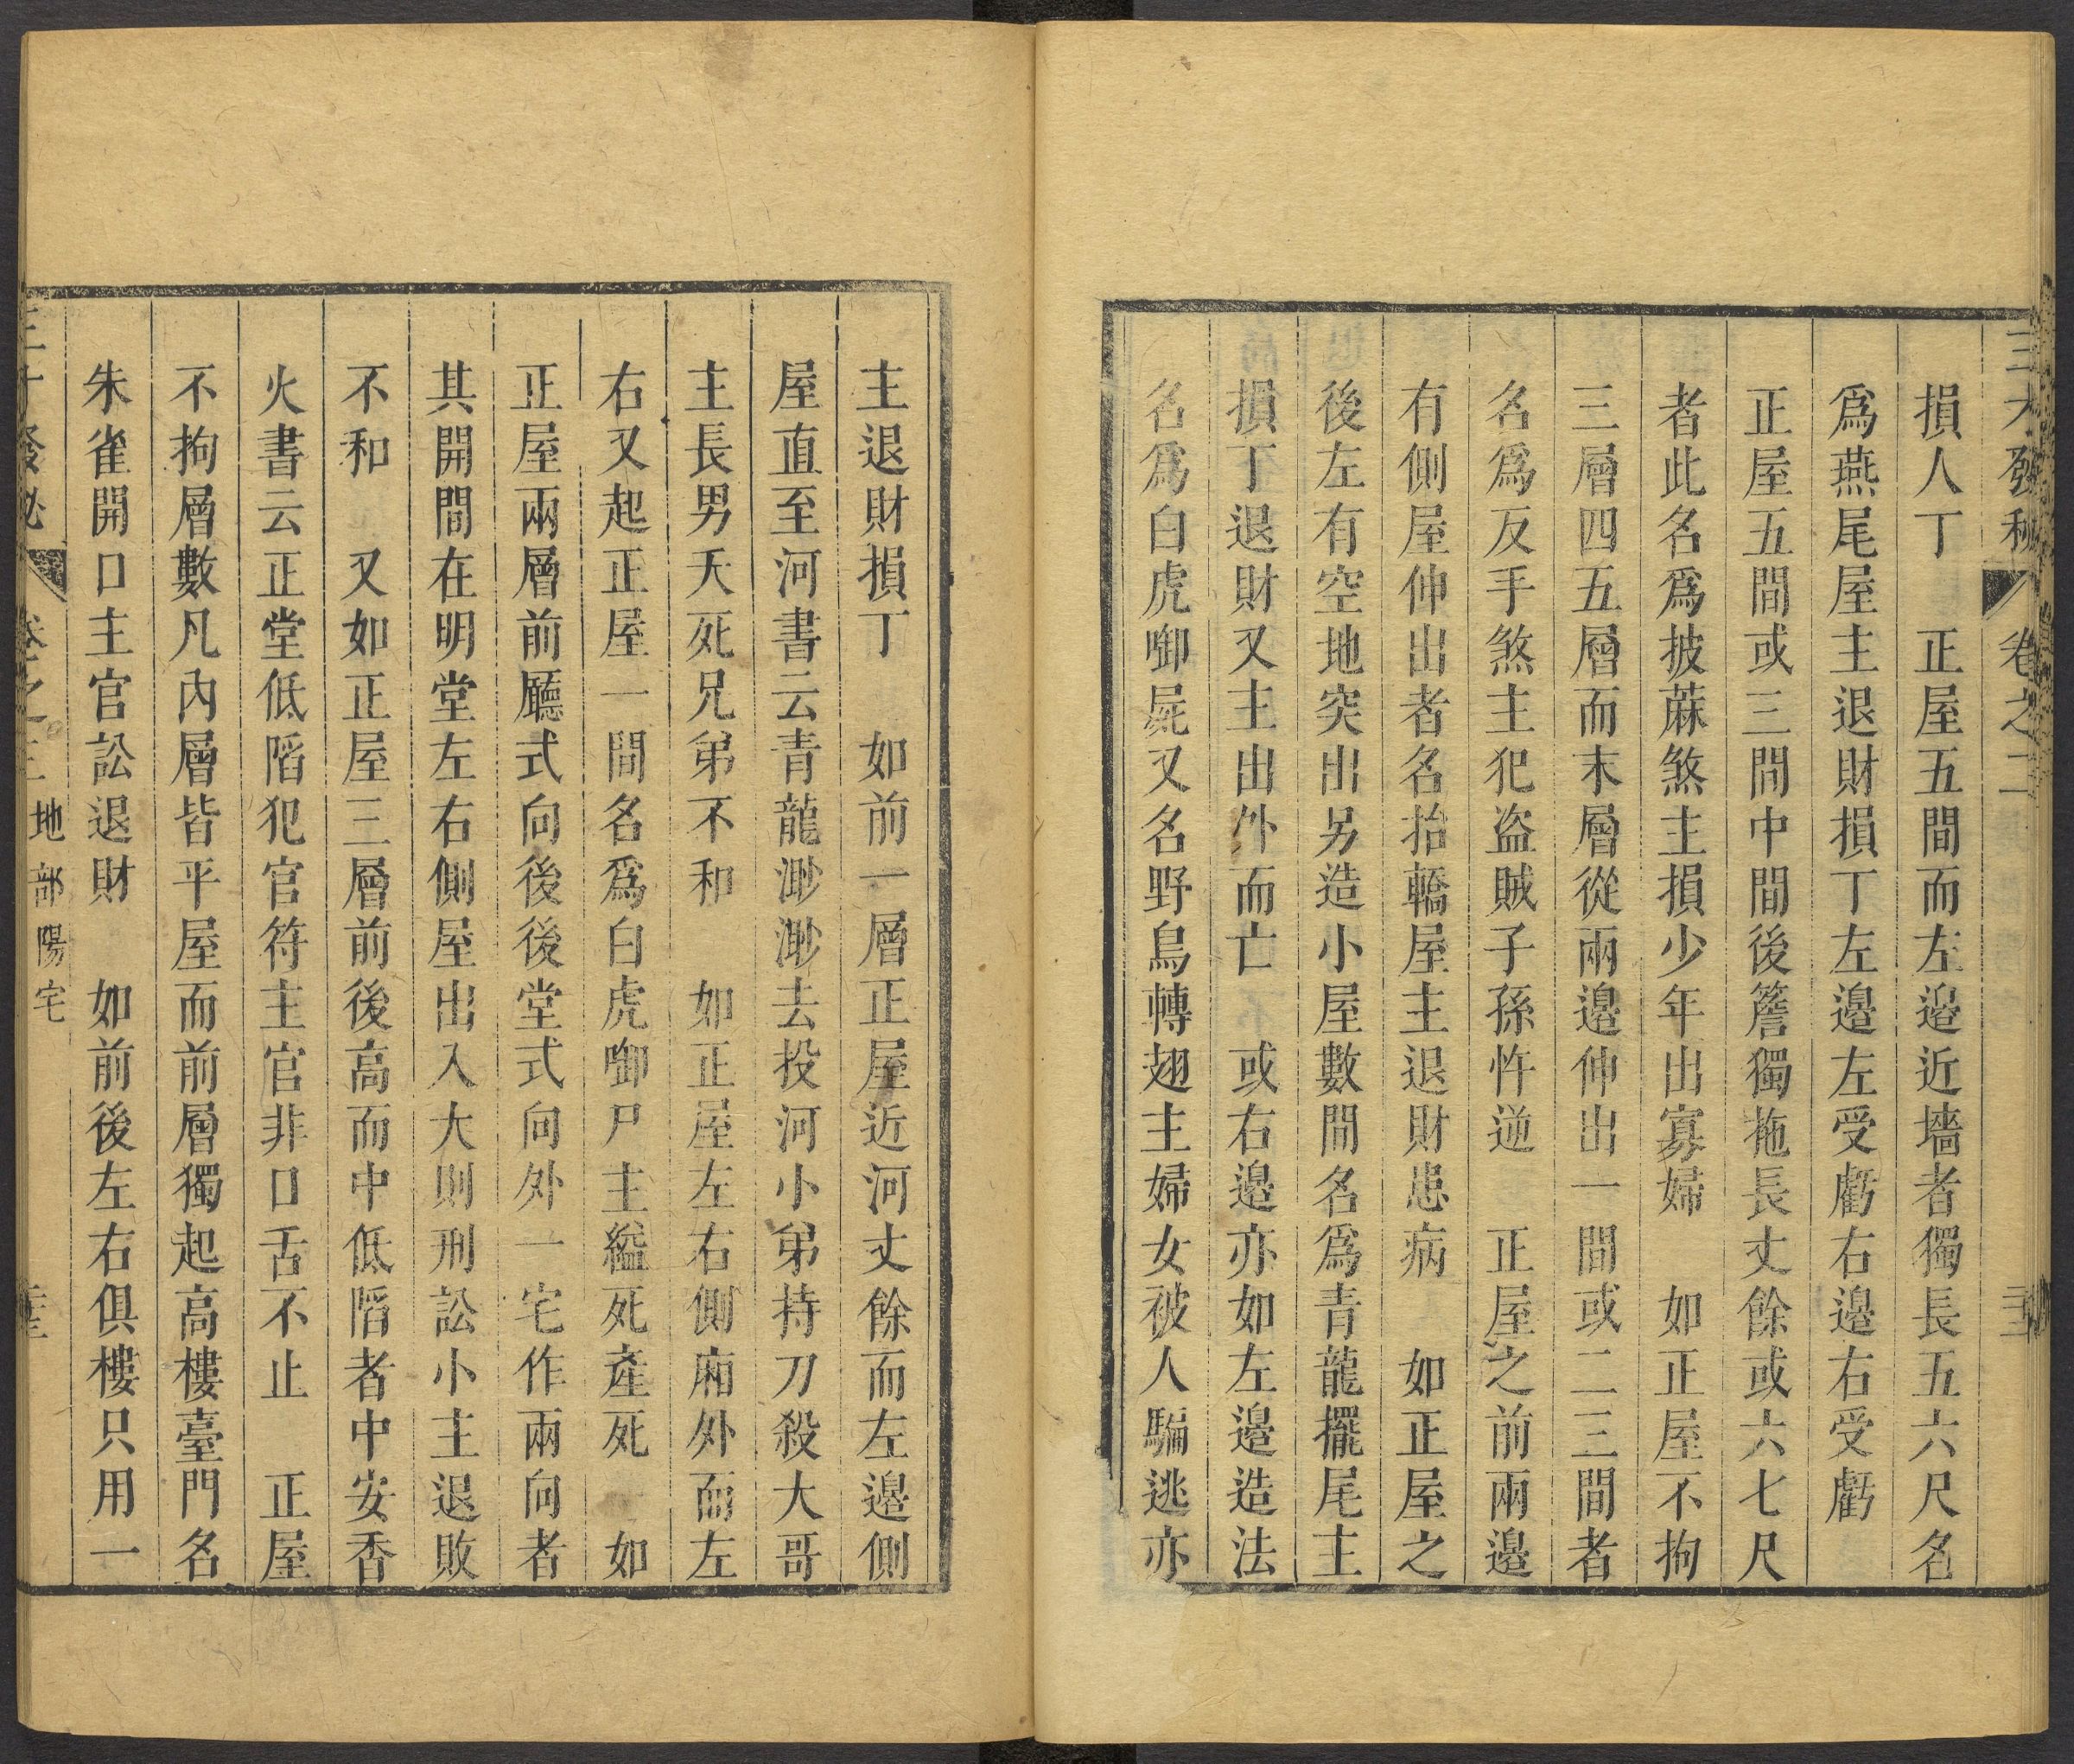 三才發秘 卷之二
損人丁　正屋五間而左邉近墻者獨長五六尺名
爲燕尾屋主退財損丁左邉左受虧右邉右受虧
正屋五間或三間中間後簷獨拖長丈餘或六七尺
者此名爲披蔴煞主損少年出寡婦　如正屋不拘
三層四五層而末層從兩邉伸出一間或二三間者
名爲反手煞主犯盜賊子孫忤逆　正屋之前兩邉
有側屋伸出者名抬轎屋主退財患病　如正屋之
後左有空地突出另造小屋數間名爲青龍擺尾主
損丁退財又主出外而亡　或右邉亦如左邉造法
名爲白虎啣屍又名野鳥轉翅主婦女被人騙逃亦
主退財損丁　如前一層正屋近河丈餘而左邉側
屋直至河書云青龍渺渺去投河小弟持刀殺大哥
主長男夭死兄弟不和　如正屋左右側廂外而左
右又起正屋一間名爲白虎啣尸主縊死產死　如
正屋兩層前廳式向後後堂式向外一宅作兩向者
其開間在明堂左右側屋出入大則刑訟小主退敗
不和　又如正屋三層前後高而中低陷者中安香
火書云正堂低陷犯官符主官非口舌不止　正屋
不拘層數凡內層皆平屋而前層獨起高樓臺門名
朱雀開口主官訟退財　如前後左右俱樓只用一
地部陽宅